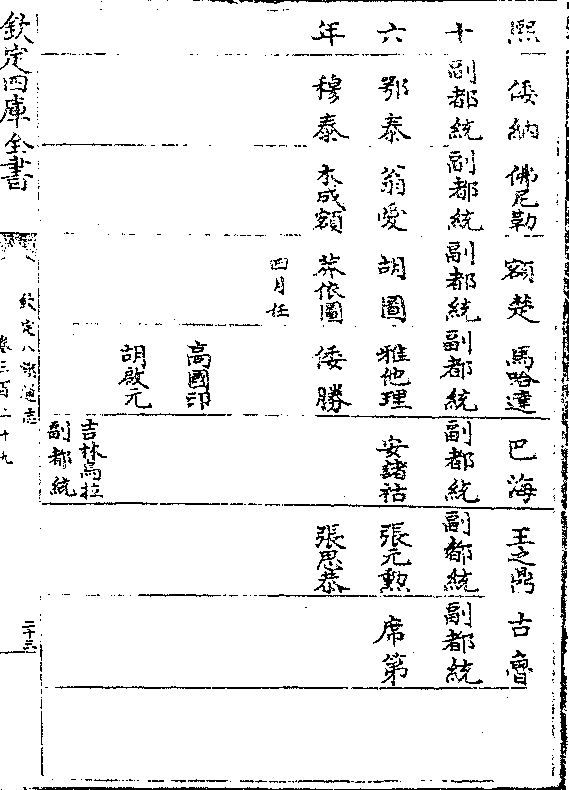 熙 倭納 佛尼勒 額楚 馬哈達 巴海 王之鼎 古魯
十 副都統 副都統 副都統 副都統 副都統 副都統 副都統
六 鄂泰 翁愛 胡圖 雅他理 安諸祜 張元勲 席第
年 穆泰 木成額 莽依圖 倭勝 張思恭
四月任
高國印
胡啟元
吉林烏拉
副都統
欽定四庫全書
欽定八旗通志
卷三百二十九